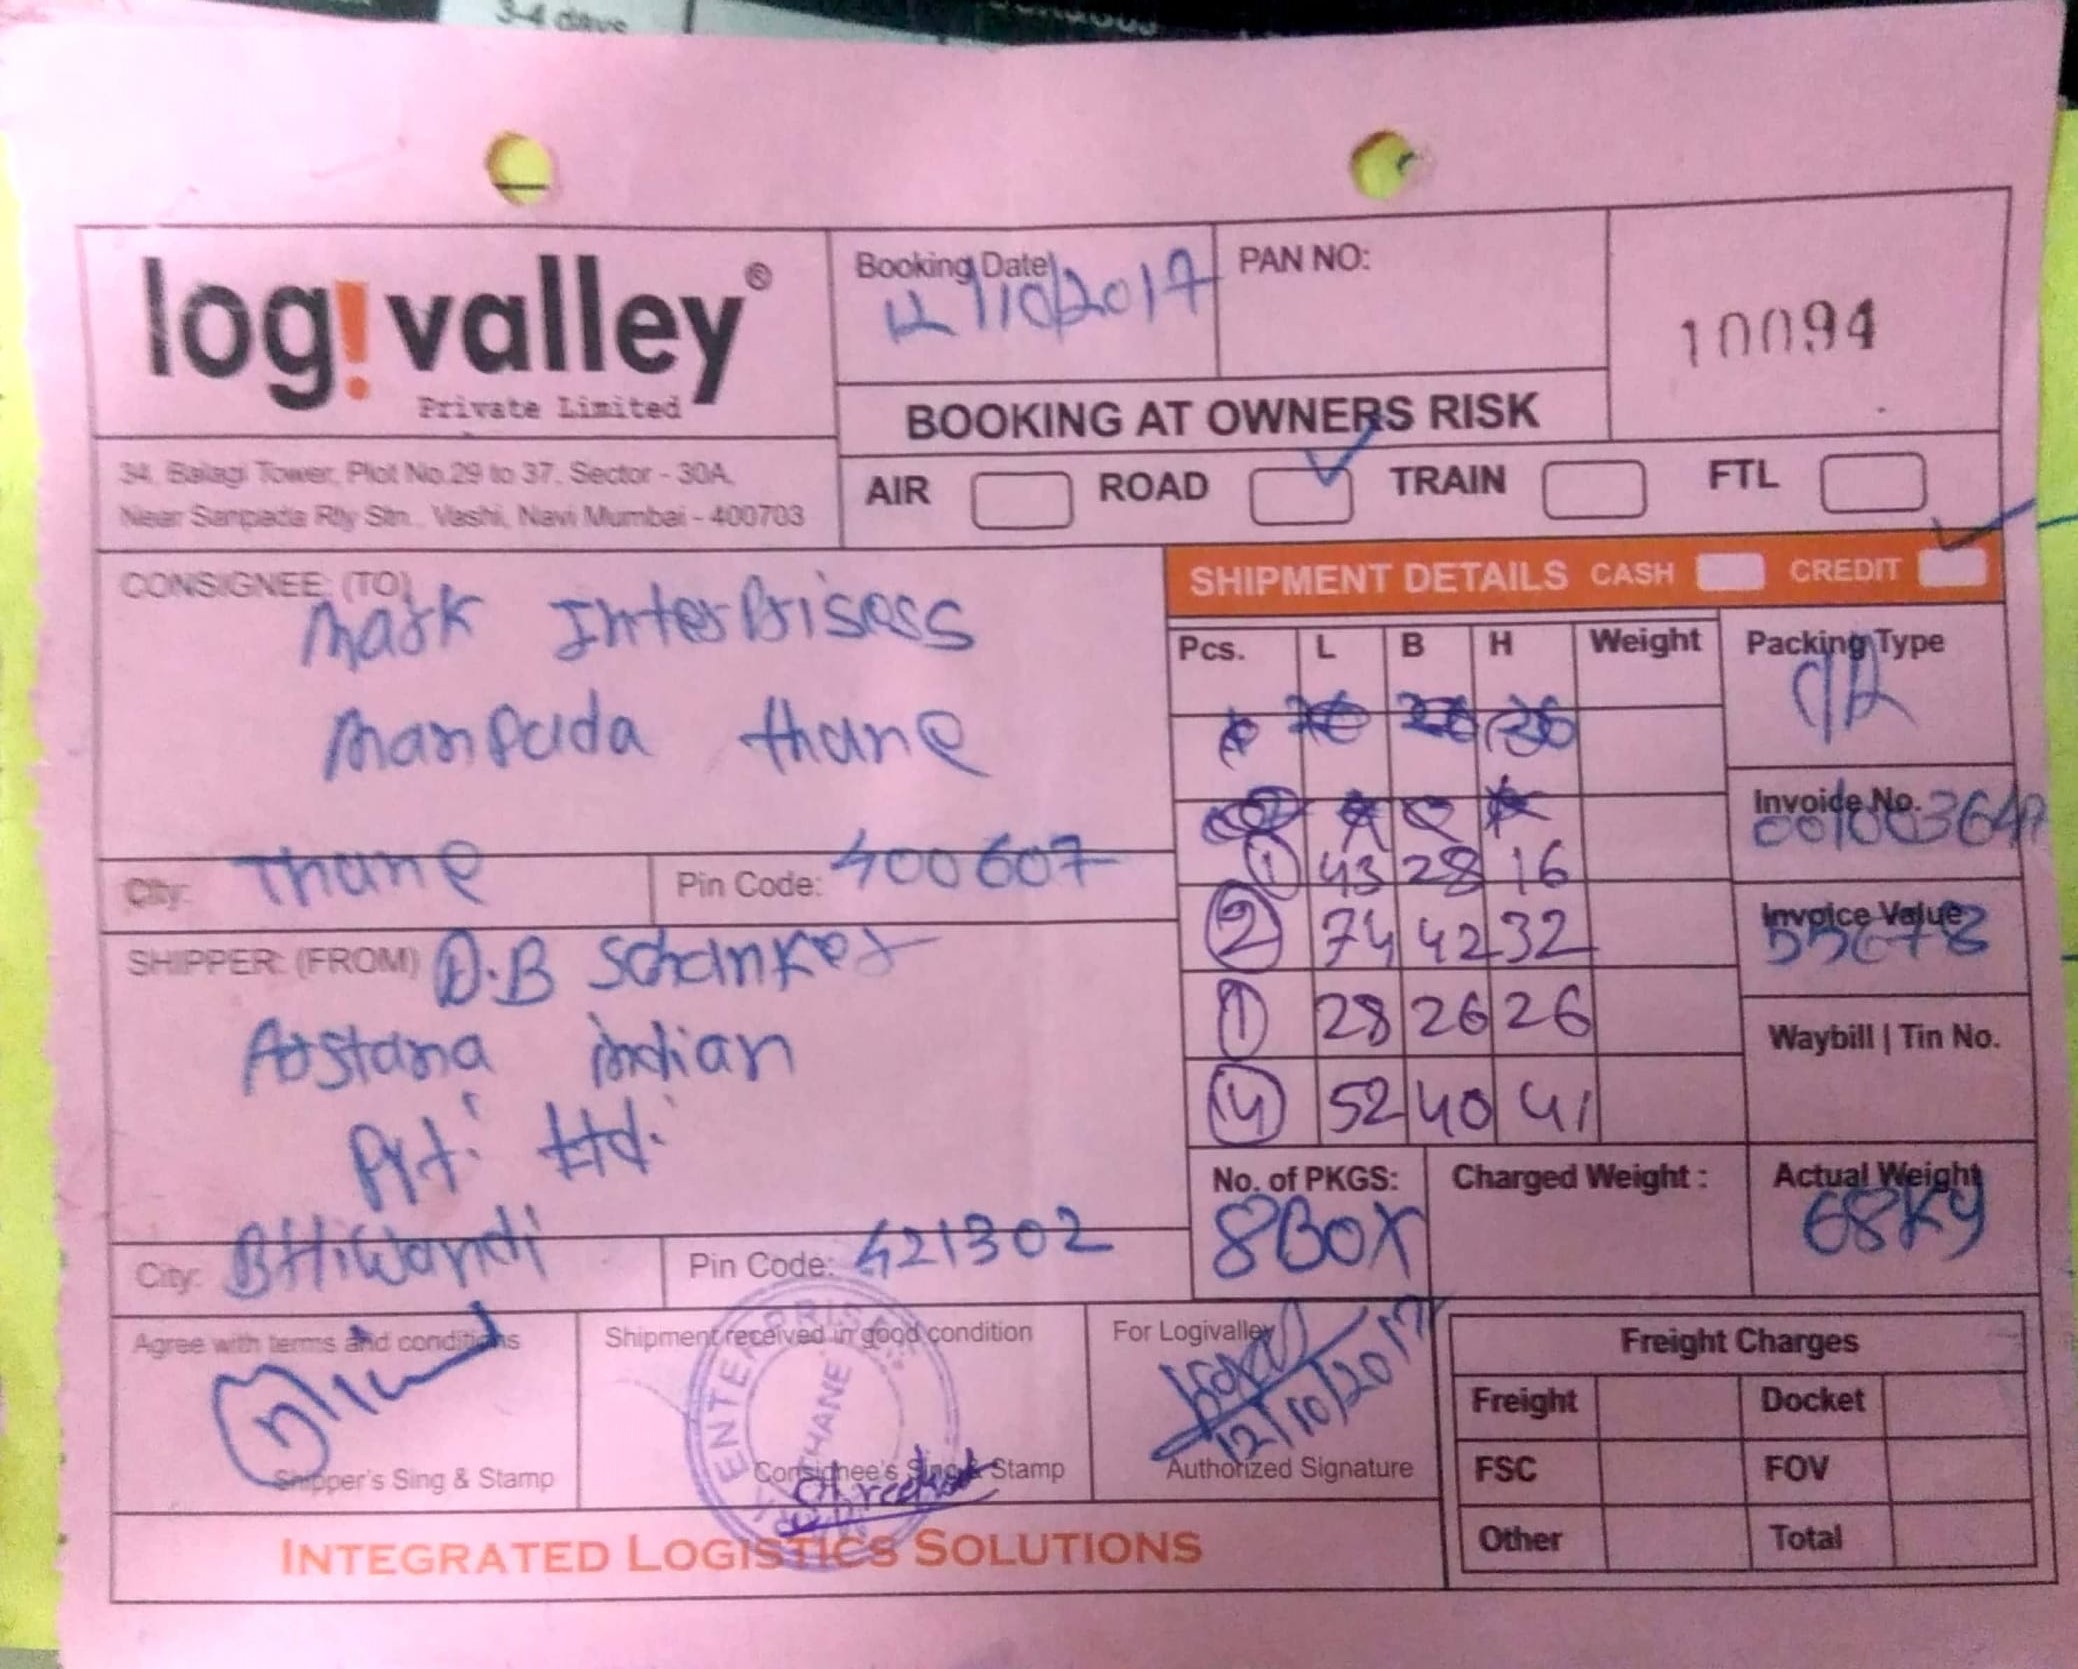 3-4 days
log!valley®
Private Limited
34, Balagi Tower, Plot No.29 to 37, Sector - 30A,
Near Sanpada Rly Stn., Vashi, Navi Mumbai - 400703
Booking Date
12/10/2017
PAN NO:
10094
BOOKING AT OWNERS RISK
AIR ROAD TRAIN FTL
CONSIGNEE: (TO)
Mark Interprisess
Manpada thane
City: Thane Pin Code: 400607
SHIPPER: (FROM) D.B Schanker
Astana indian
Pvt. Ltd.
City: BHiwandi Pin Code: 421302
SHIPMENT DETAILS CASH CREDIT
Pcs. L B H Weight
1 43 28 16
2 74 42 32
1 28 26 26
4 52 40 41
Packing Type
Invoide No.
Invoice Value
Waybill | Tin No.
No. of PKGS:
8BOX
Charged Weight :
Actual Weight
68Kg
Agree with terms and conditions
Shipper's Sing & Stamp
Shipment received in good condition
ENTERPRISES
THANE
Consignee's Sing & Stamp
For Logivalley
12/10/2017
Authorized Signature
Freight Charges
Freight Docket
FSC FOV
Other Total
INTEGRATED LOGISTICS SOLUTIONS